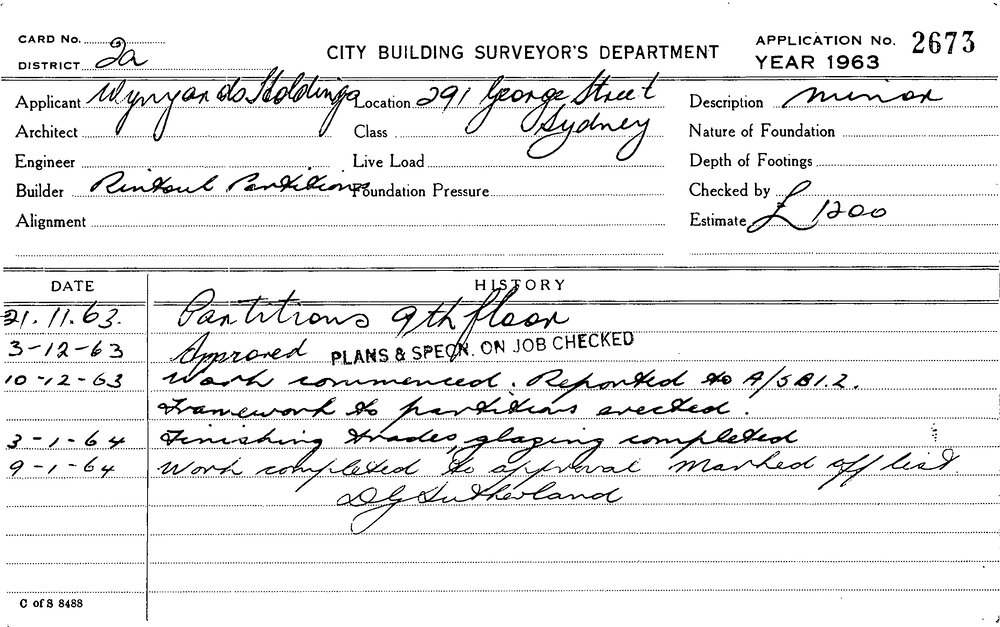 CARD No.
DISTRICT 2a
CITY BUILDING SURVEYOR'S DEPARTMENT
APPLICATION No. 2673
YEAR 1963
Applicant Wynyards Holdings Location 291 George Street Description minor
Architect Class Sydney Nature of Foundation
Engineer Live Load Depth of Footings
Builder Rintoul Partitions Foundation Pressure Checked by
Alignment Estimate £ 1200
DATE HISTORY
21.11.63. Partitions 9th floor
3-12-63 Approved PLANS & SPECN. ON JOB CHECKED
10-12-63 Work commenced. Reported to A/SB1.2.
Framework to partitions erected.
3-1-64 Finishing trades, glazing completed
9-1-64 Work completed to approval Marked off list.
DG Sutherland
C of S 8488